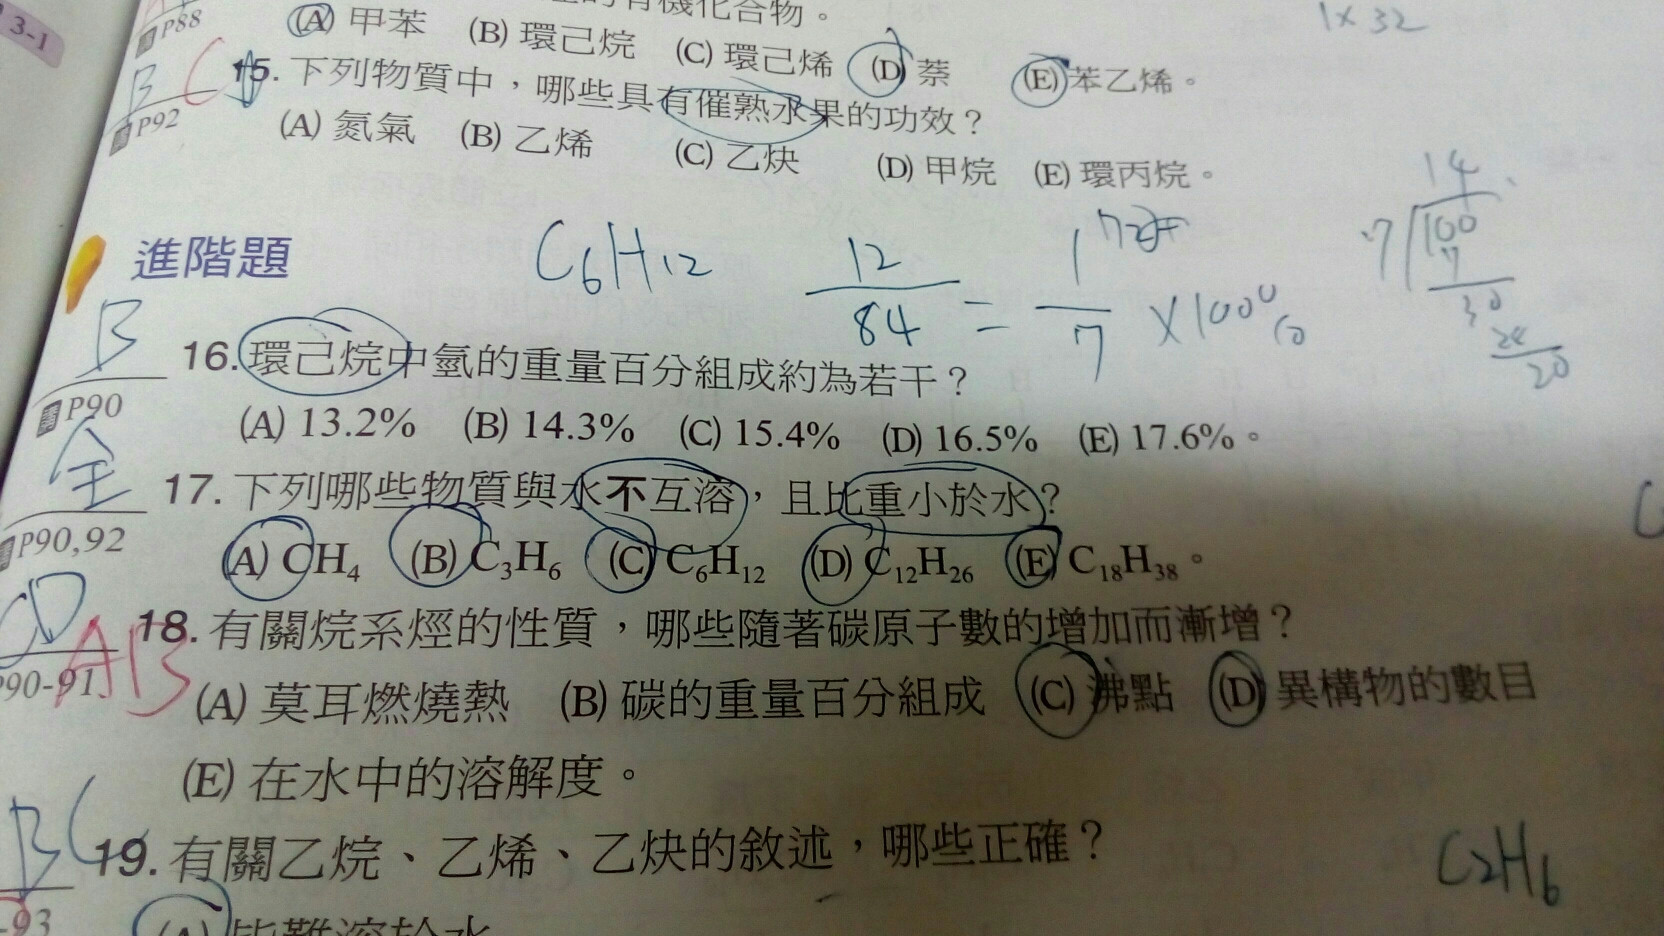 3-1
的有機化合物。
P88
(A) 甲苯 (B) 環己烷 (C) 環己烯 (D) 萘 (E) 苯乙烯。
1×32
B C
P92
15. 下列物質中，哪些具有催熟水果的功效？
(A) 氮氣 (B) 乙烯 (C) 乙炔 (D) 甲烷 (E) 環丙烷。
進階題
C6H12
12/84 = 1/7 ×100%
14
7 100
7
30
28
20
B
P90
16. 環己烷中氫的重量百分組成約為若干？
(A) 13.2% (B) 14.3% (C) 15.4% (D) 16.5% (E) 17.6%。
全
P90,92
17. 下列哪些物質與水不互溶，且比重小於水？
(A) CH₄ (B) C₃H₆ (C) C₆H₁₂ (D) C₁₂H₂₆ (E) C₁₈H₃₈。
CD
AB
P90-91
18. 有關烷系烴的性質，哪些隨著碳原子數的增加而漸增？
(A) 莫耳燃燒熱 (B) 碳的重量百分組成 (C) 沸點 (D) 異構物的數目
(E) 在水中的溶解度。
BC
-93
19. 有關乙烷、乙烯、乙炔的敘述，哪些正確？
C2H6
(A) 皆難溶於水